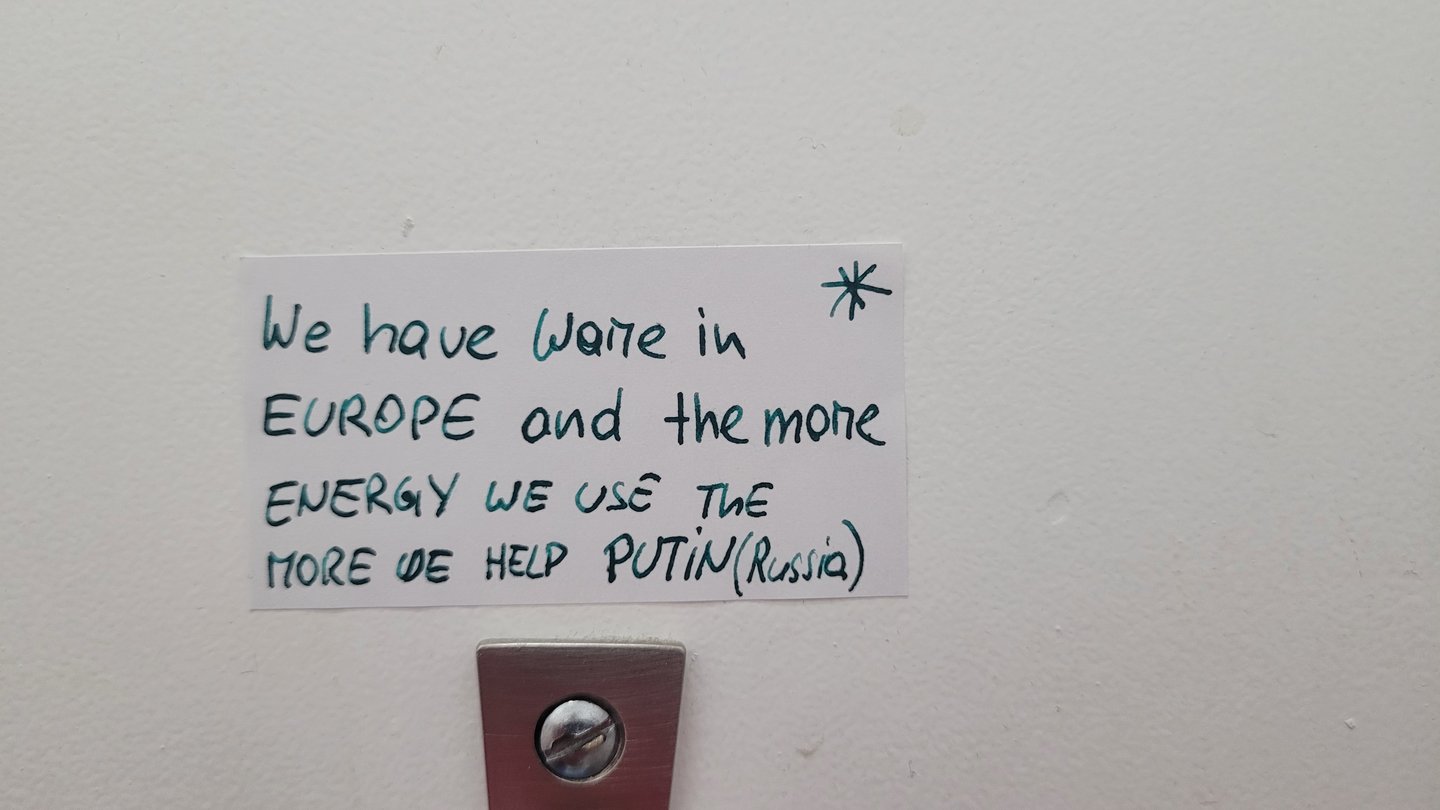 We have Warre in *
EUROPE and the more
ENERGY WE USE THE
MORE WE HELP PUTiN (Russia)